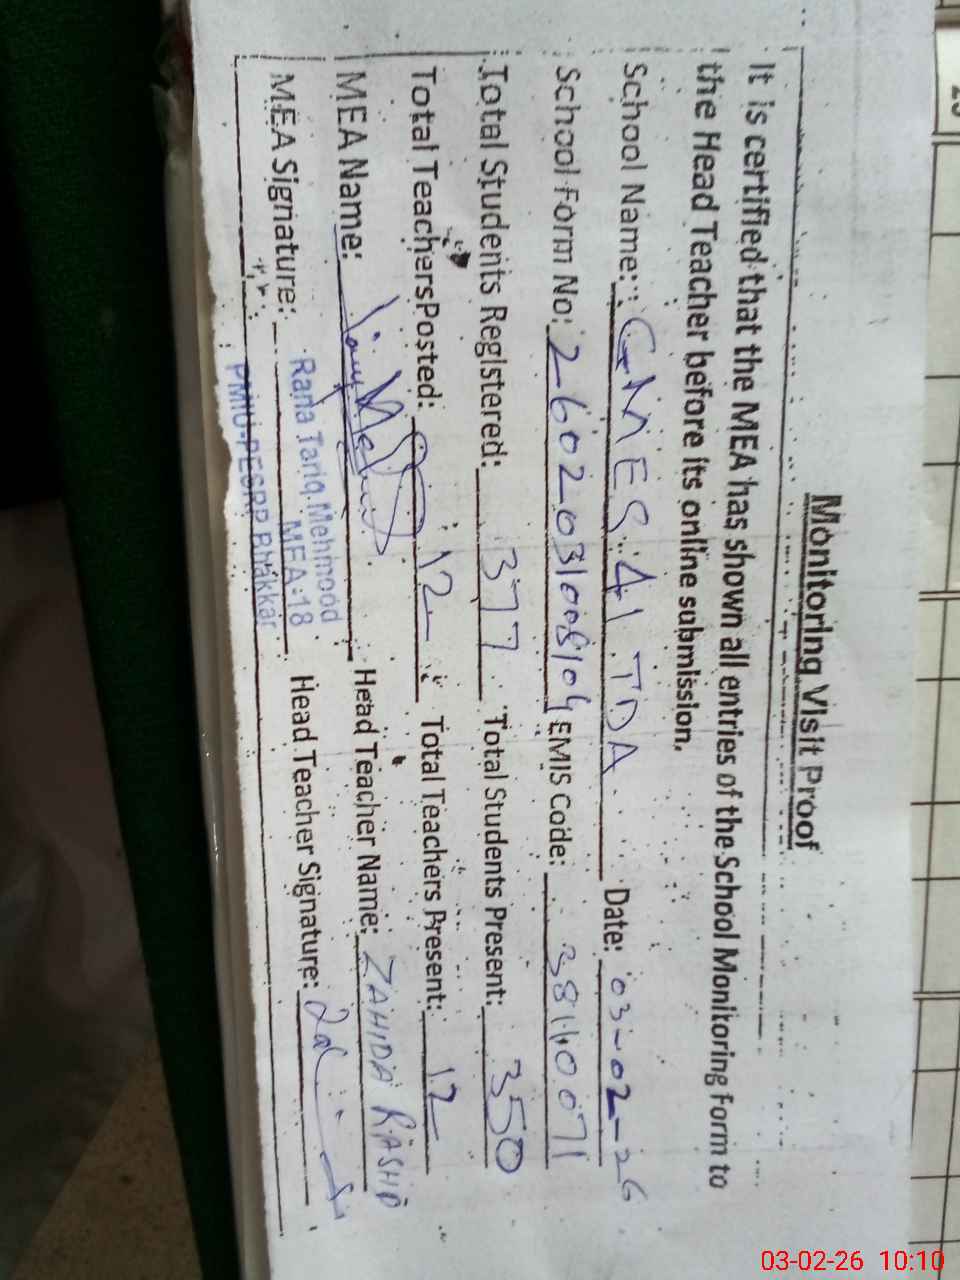 Monitoring Visit Proof
It is certified that the MEA has shown all entries of the School Monikoring Form to
the Head Teacher before its online submission.
School Name: GMES 41 TDA Date: 03-02-26
School Form No: EMIS Code:
Total Students Registered: 377 Total Students Present: 350
Total TeachersPosted: 12 Total Teachers Present: 12
MEA Name: Head Teacher Name: ZAHIDA RASHID
MEA Signature: Head Teacher Signature:
Rana Tariq Mehmood
MEA-18
PMIU-PESRP Bhakkar
03-02-26 10:10